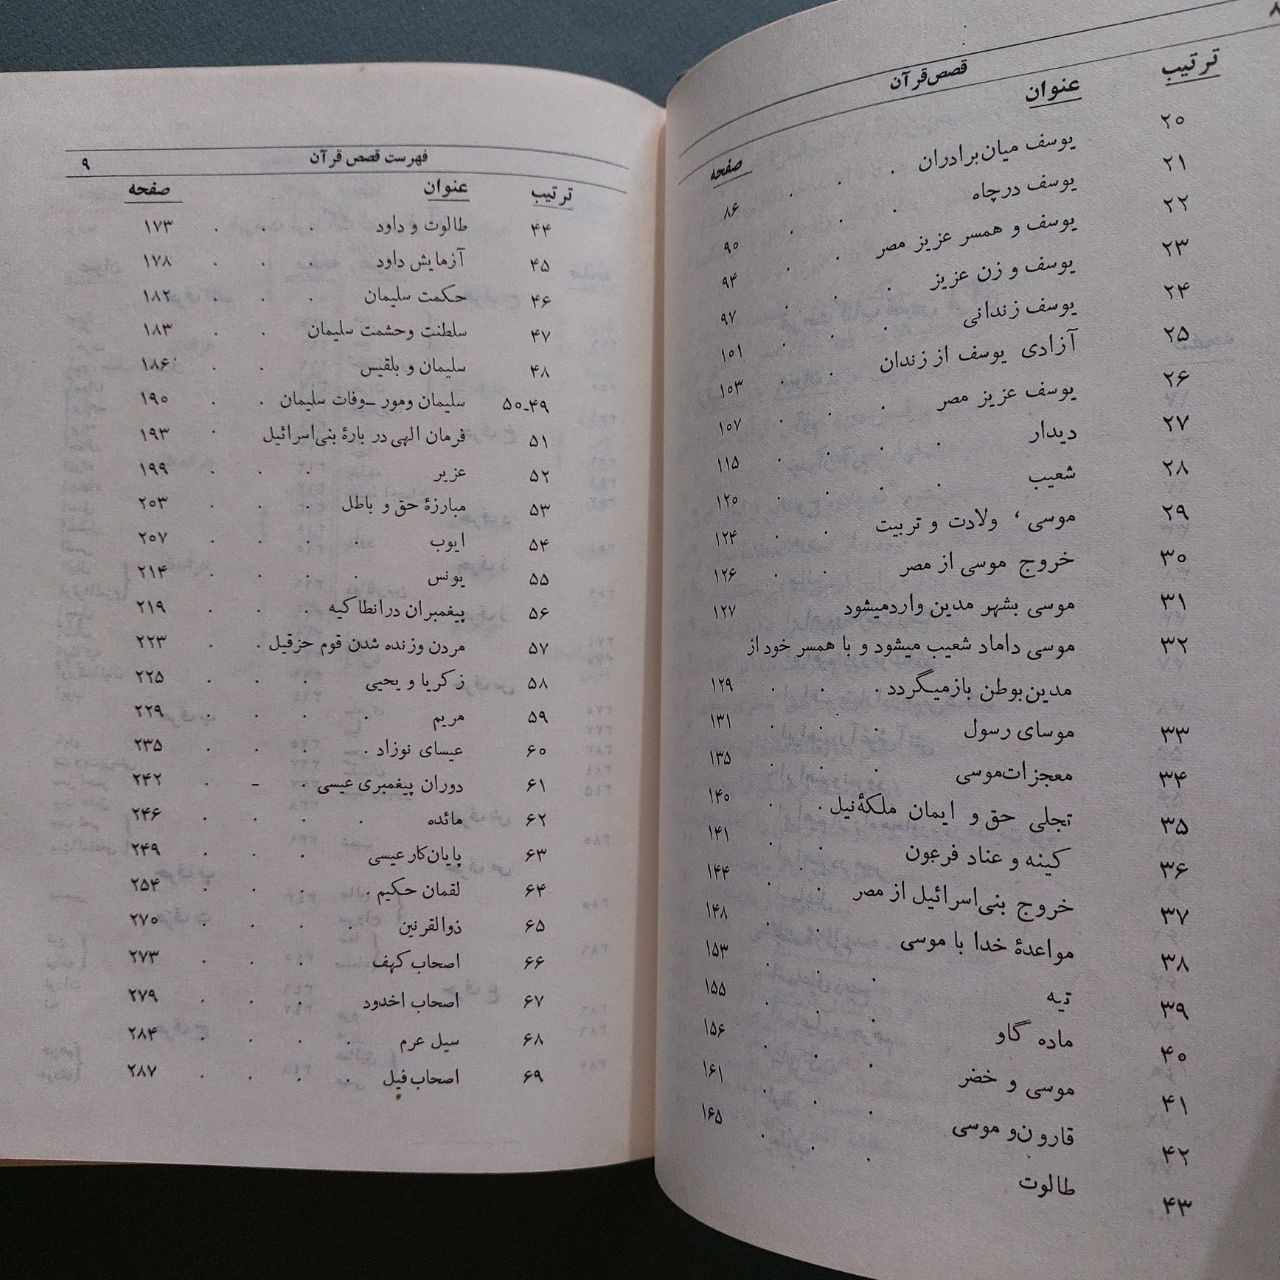 ۸
قصص قرآن
ترتیب عنوان صفحه
۲۰ یوسف میان برادران . . . ۸۶
۲۱ یوسف در چاه . . . ۹۰
۲۲ یوسف و همسر عزیز مصر . . ۹۴
۲۳ یوسف و زن عزیز . . . ۹۷
۲۴ یوسف زندانی . . . ۱۰۱
۲۵ آزادی یوسف از زندان . . ۱۰۳
۲۶ یوسف عزیز مصر . . . ۱۰۷
۲۷ دیدار . . . . ۱۱۵
۲۸ شعیب . . . . ۱۲۰
۲۹ موسی ، ولادت و تربیت . . ۱۲۴
۳۰ خروج موسی از مصر . . ۱۲۶
۳۱ موسی بشهر مدین واردمیشود ۱۲۷
۳۲ موسی داماد شعیب میشود و با همسر خود از
مدین بوطن بازمیگردد . . . ۱۲۹
۳۳ موسای رسول . . . ۱۳۱
۳۴ معجزات موسی . . . ۱۳۵
۳۵ تجلی حق و ایمان ملکهٔ نیل . . ۱۴۰
۳۶ کینه و عناد فرعون . . ۱۴۱
۳۷ خروج بنی اسرائیل از مصر . . ۱۴۴
۳۸ مواعدهٔ خدا با موسی . . ۱۴۸
۳۹ تیه . . . . ۱۵۳
۴۰ ماده گاو . . . ۱۵۵
۴۱ موسی و خضر . . . ۱۵۶
۴۲ قارون و موسی . . . ۱۶۱
۴۳ طالوت . . . ۱۶۵
فهرست قصص قرآن ۹
ترتیب عنوان صفحه
۴۴ طالوت و داود . . . ۱۷۳
۴۵ آزمایش داود . . . ۱۷۸
۴۶ حکمت سلیمان . . . ۱۸۲
۴۷ سلطنت وحشمت سلیمان . . ۱۸۳
۴۸ سلیمان و بلقیس . . . ۱۸۶
۴۹-۵۰ سلیمان ومور ـ وفات سلیمان . . ۱۹۰
۵۱ فرمان الهی در بارهٔ بنی اسرائیل . ۱۹۳
۵۲ عزیر . . . . ۱۹۹
۵۳ مبارزهٔ حق و باطل . . ۲۰۳
۵۴ ایوب . . . . ۲۰۷
۵۵ یونس . . . . ۲۱۴
۵۶ پیغمبران درانطاکیه . . . ۲۱۹
۵۷ مردن وزنده شدن قوم حزقیل . . ۲۲۳
۵۸ زکریا و یحیی . . . ۲۲۵
۵۹ مریم . . . . ۲۲۹
۶۰ عیسای نوزاد . . . . ۲۳۵
۶۱ دوران پیغمبری عیسی . - . ۲۴۲
۶۲ مائده . . . . ۲۴۶
۶۳ پایان کار عیسی . . . ۲۴۹
۶۴ لقمان حکیم . . . . ۲۵۴
۶۵ ذوالقرنین . . . . ۲۷۰
۶۶ اصحاب کهف . . . ۲۷۳
۶۷ اصحاب اخدود . . . ۲۷۹
۶۸ سیل عرم . . . . ۲۸۴
۶۹ اصحاب فیل . . . . ۲۸۷